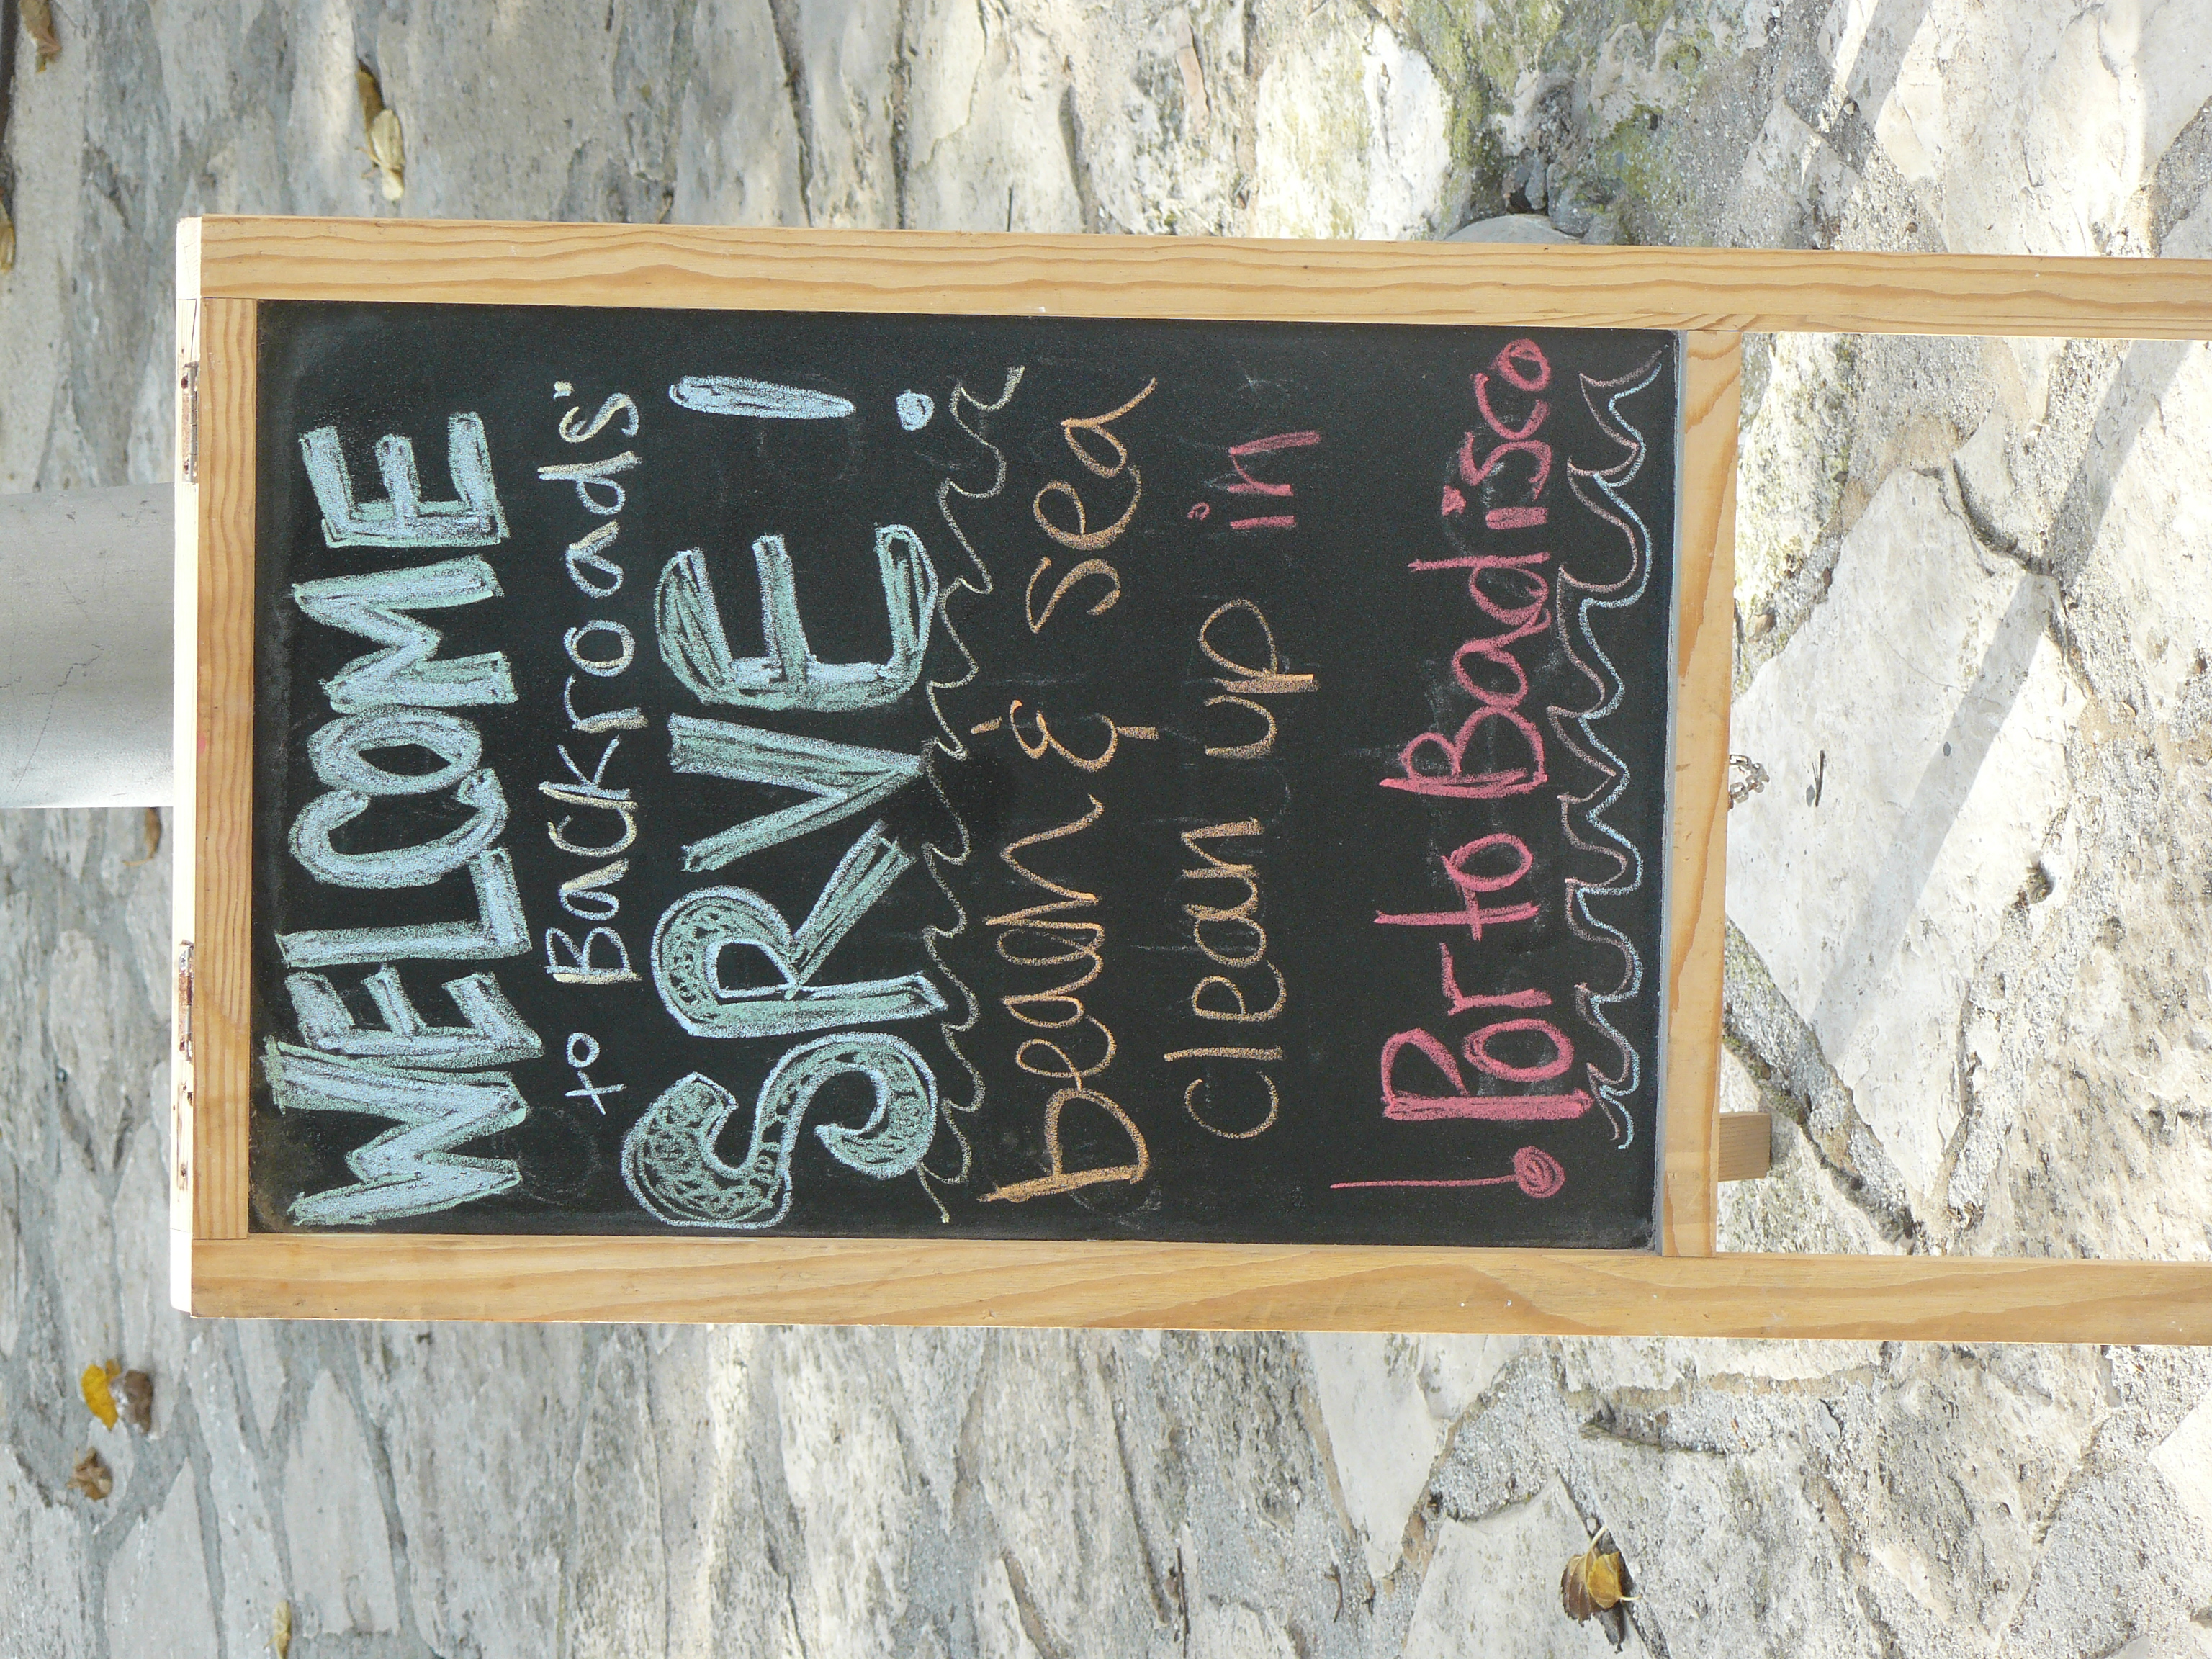 WELCOME
to Backroads'
SRVE!
beach & sea
clean up in
! Porto Badisco